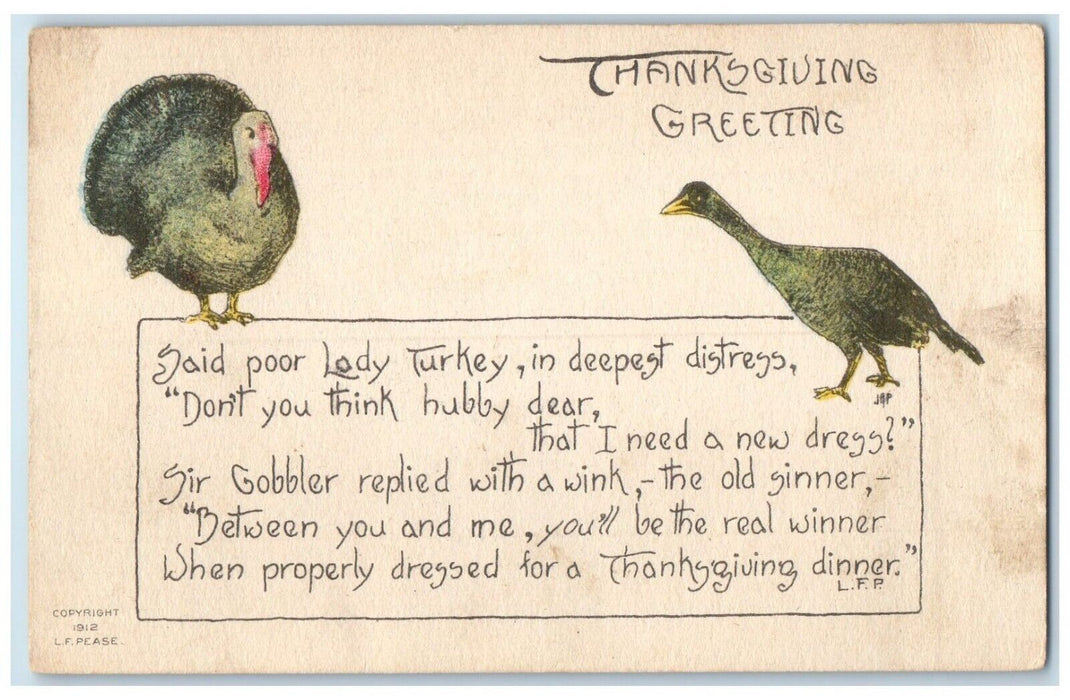 THANKSGIVING
GREETING
Said poor Lady Turkey, in deepest distress,
"Don't you think hubby dear,
that I need a new dress?"
Sir Gobbler replied with a wink,-the old sinner,-
"Between you and me, you'll be the real winner
When properly dressed for a Thanksgiving dinner."
L.F.P.
COPYRIGHT
1912
L.F. PEASE.